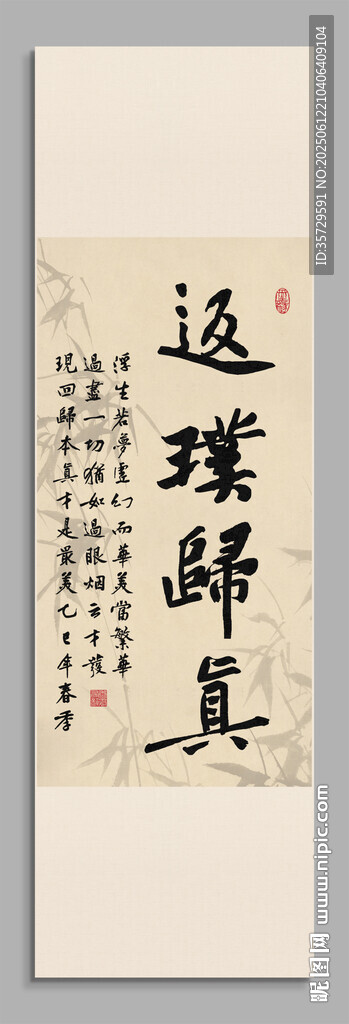 返璞歸真
浮生若夢虛幻而華美當繁華
過盡一切猶如過眼烟云才發
現回歸本真才是最美乙巳年春季
ID:35729591 NO:20250612210406409104
昵图网 www.nipic.com